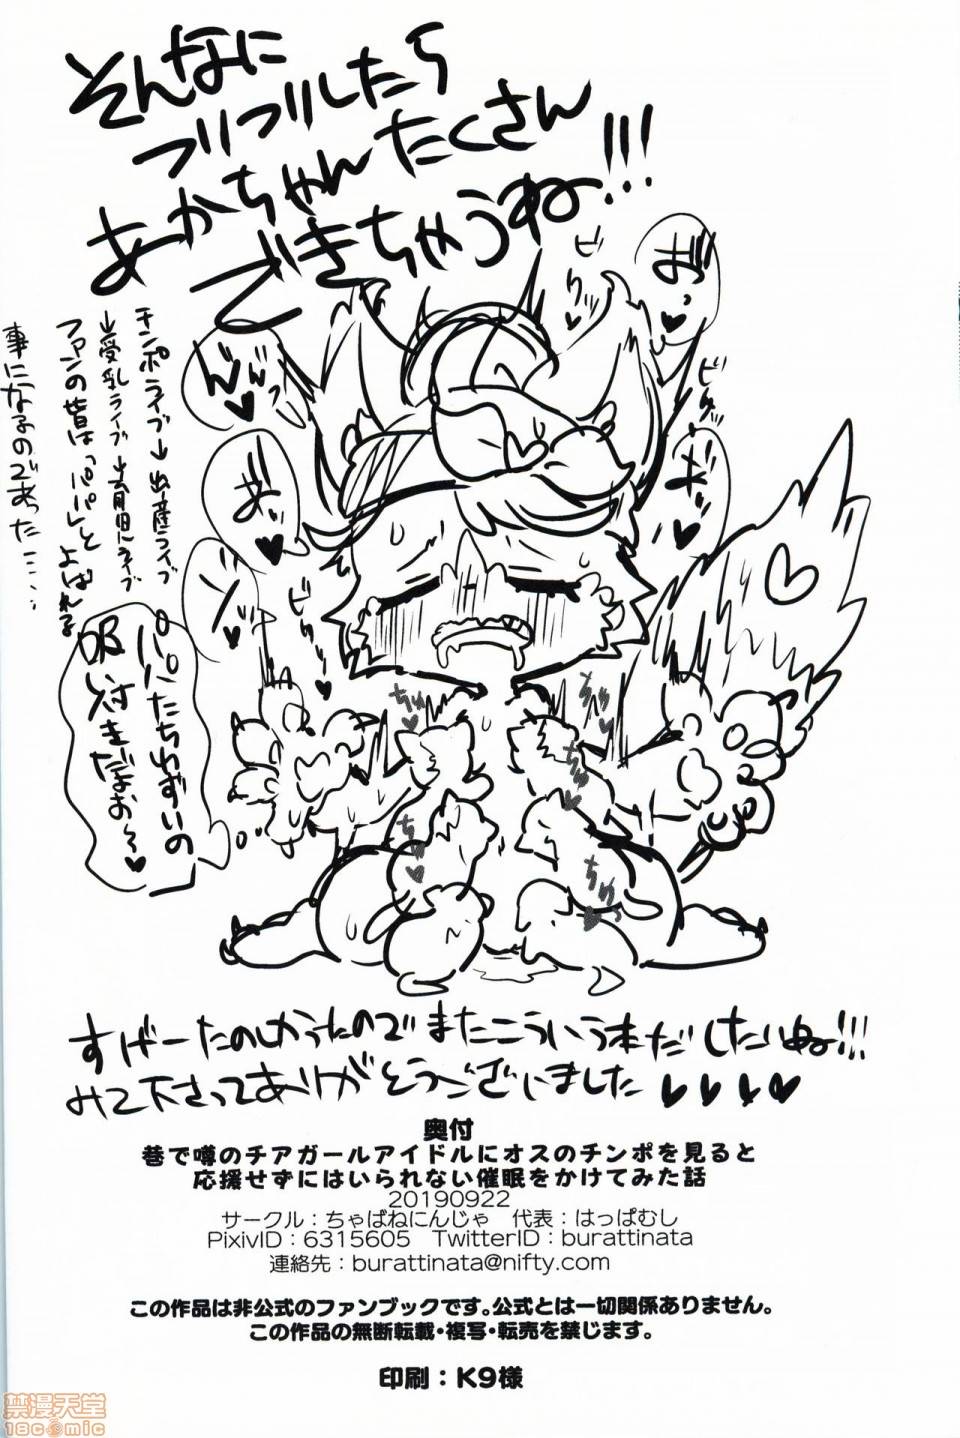 そんなに
ブリブリしたら
あかちゃんたくさん
できちゃうね!!!
チンポライブ→出産ライブ
ファンの皆は「パパ」と よばれる
事になるのであった……
おっ♥
ビクッ
パパたち
吸い付きだよお〜♥
ちゅっ♥
ちゅっ♥
ちゅっ♥
ちゅっ♥
すげーたのしかったのでまたこういう本だしたいぬ!!!
みて下さってありがとうございました♥♥♥♥
奥付
巷で噂のチアガールアイドルにオスのチンポを見ると
応援せずにはいられない催眠をかけてみた話
20190922
サークル：ちゃばねにんじゃ　代表：はっぱむし
PixivID：6315605　TwitterID：burattinata
連絡先：burattinata@nifty.com
この作品は非公式のファンブックです。公式とは一切関係ありません。
この作品の無断転載・複写・転売を禁じます。
印刷：K9様
禁漫天堂
18comic